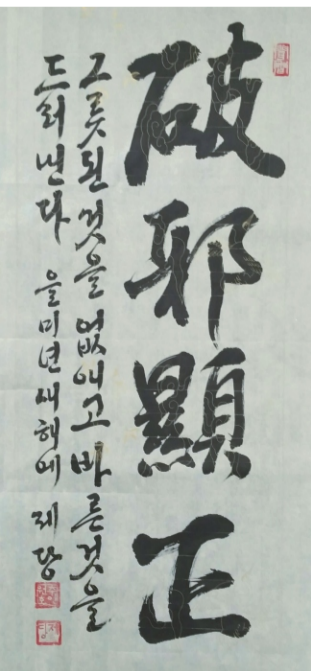 破邪顯正
그릇된것을 없애고 바른것을
드러낸다 을미년새해에 제당